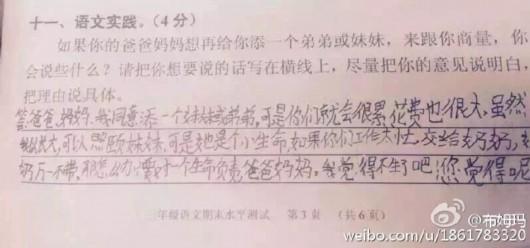 十一、语文实践。(4分)
如果你的爸爸妈妈想再给你添一个弟弟或妹妹,来跟你商量,你
会说些什么?请把你想要说的话写在横线上,尽量把你的意见说明白,
把理由说具体。
答:爸爸、妈妈,我同意添一个妹妹或弟弟,可是你们就会很累,花费也很大,虽然
我长大,可以照顾妹妹,可是她是个小生命,如果你们工作太忙,交给奶奶,
奶万一不带,要对一个生命负责爸爸妈妈。我觉得不生了吧,您觉得呢
三年级语文期末水平测试 第3页 (共6页)
@布姆玛
weibo.com/u/1861783320